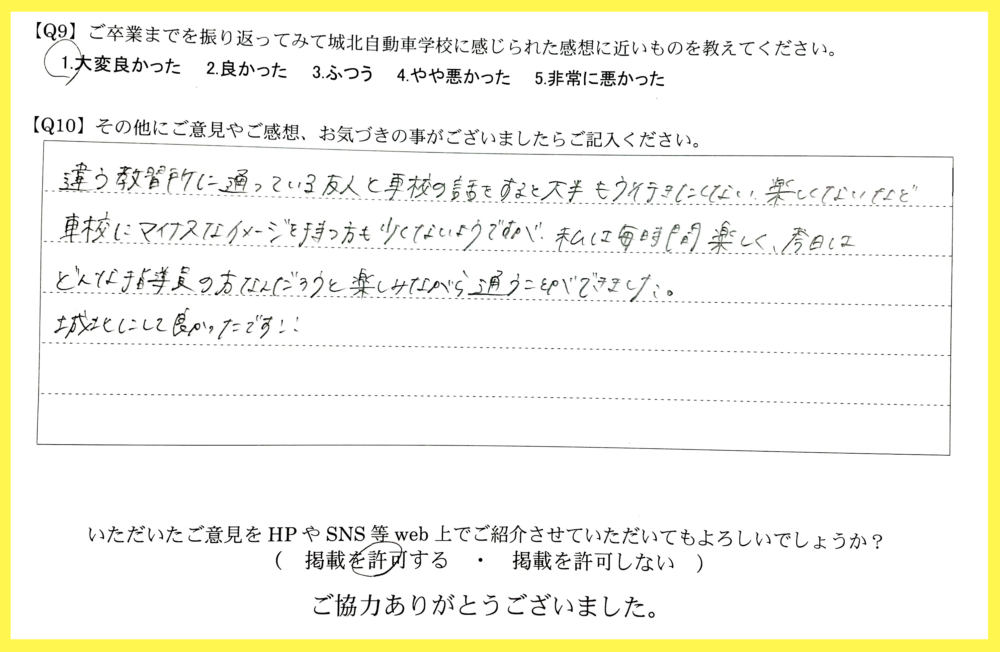 【Q9】ご卒業までを振り返ってみて城北自動車学校に感じられた感想に近いものを教えてください。
1.大変良かった 2.良かった 3.ふつう 4.やや悪かった 5.非常に悪かった
【Q10】その他にご意見やご感想、お気づきの事がございましたらご記入ください。
違う教習所に通っている友人と車校の話をすると大半もう行きたくない、楽しくないなど
車校にマイナスなイメージを持つ方も少なくないようですが、私は毎時間楽しく、今日は
どんな指導員の方なんだろうと楽しみながら通うことができました。
城北にして良かったです!!
いただいたご意見をHPやSNS等web上でご紹介させていただいてもよろしいでしょうか?
( 掲載を許可する ・ 掲載を許可しない )
ご協力ありがとうございました。